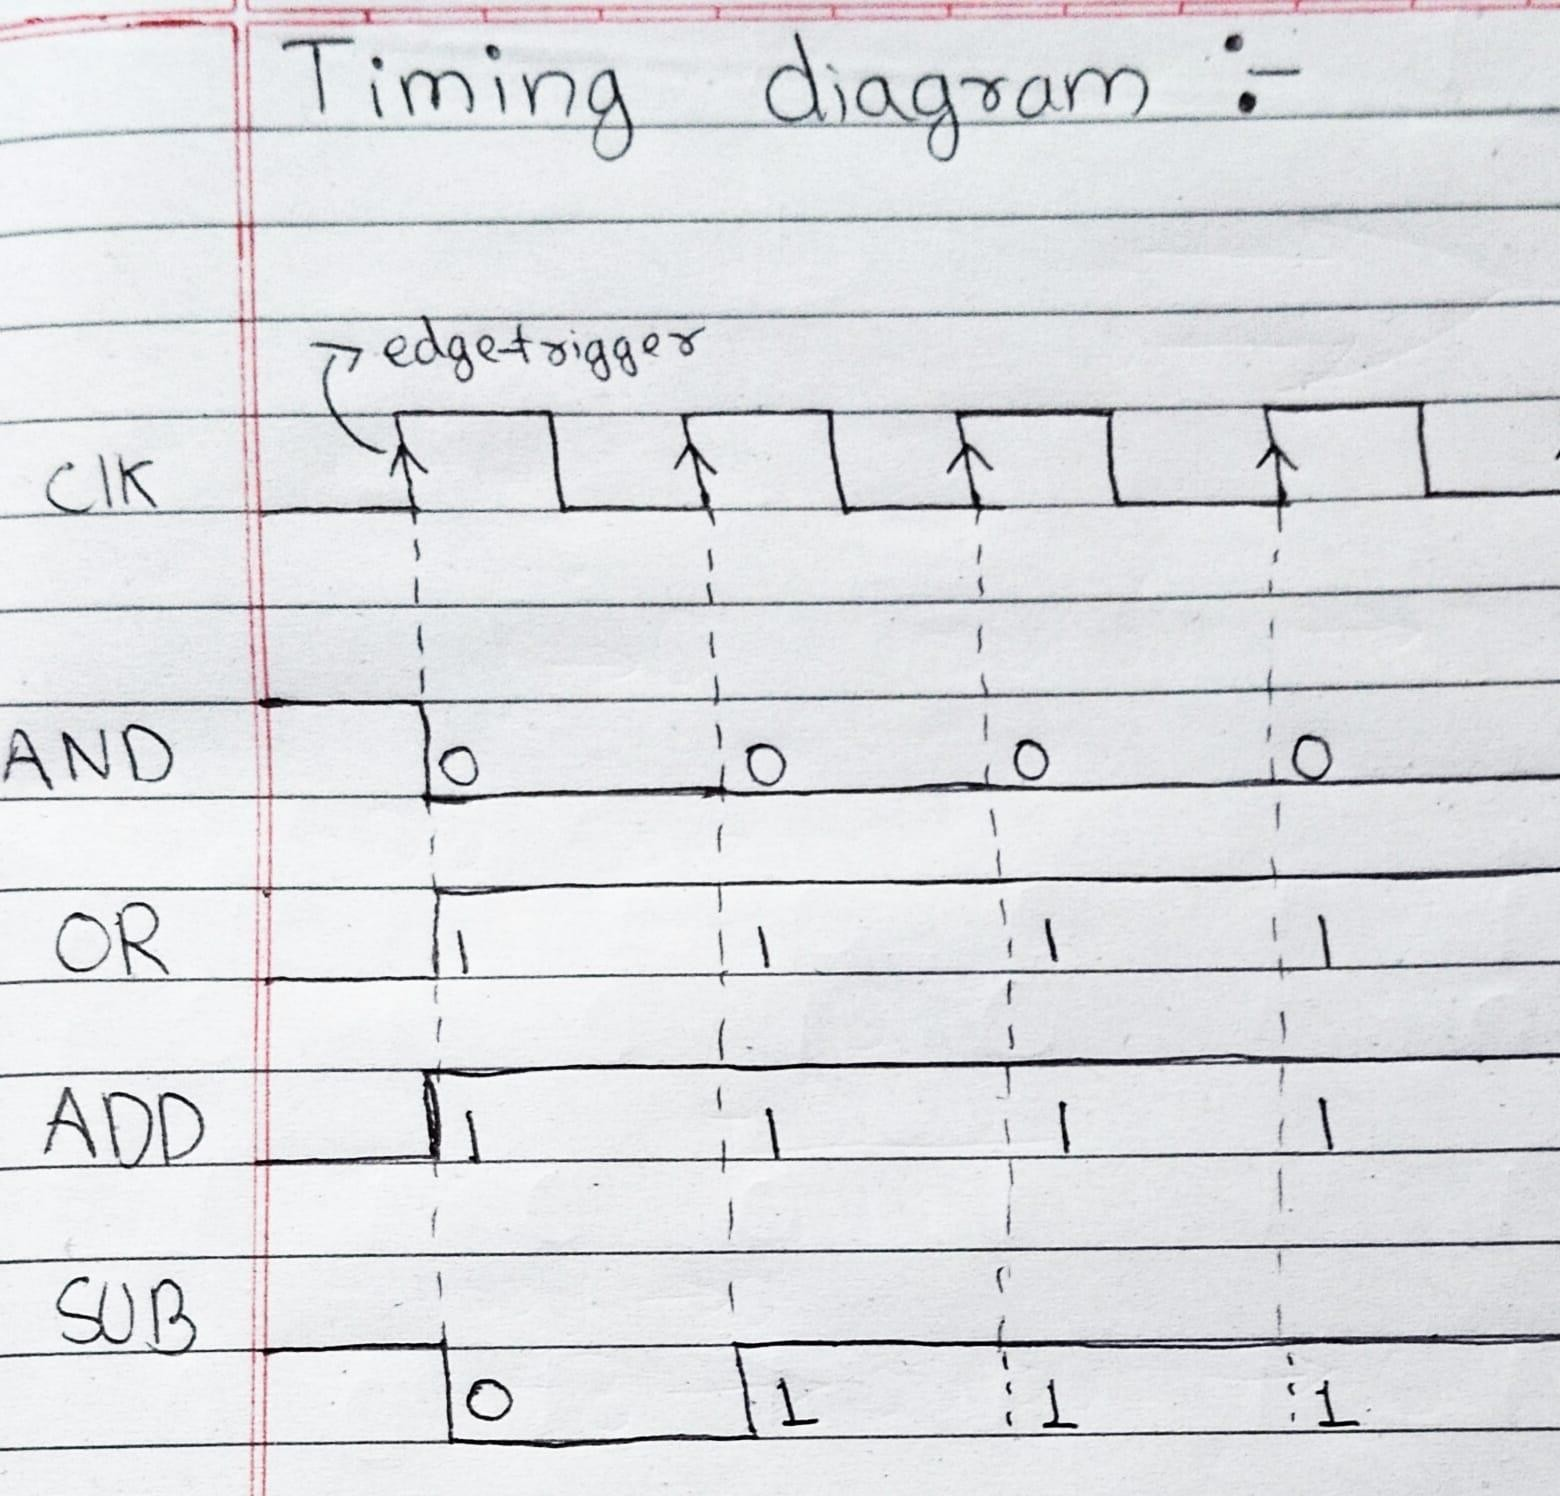 Timing diagram :-
edge-trigger
Clk
AND 0 0 0 0
OR 1 1 1 1
ADD 1 1 1 1
SUB
0 1 1 1